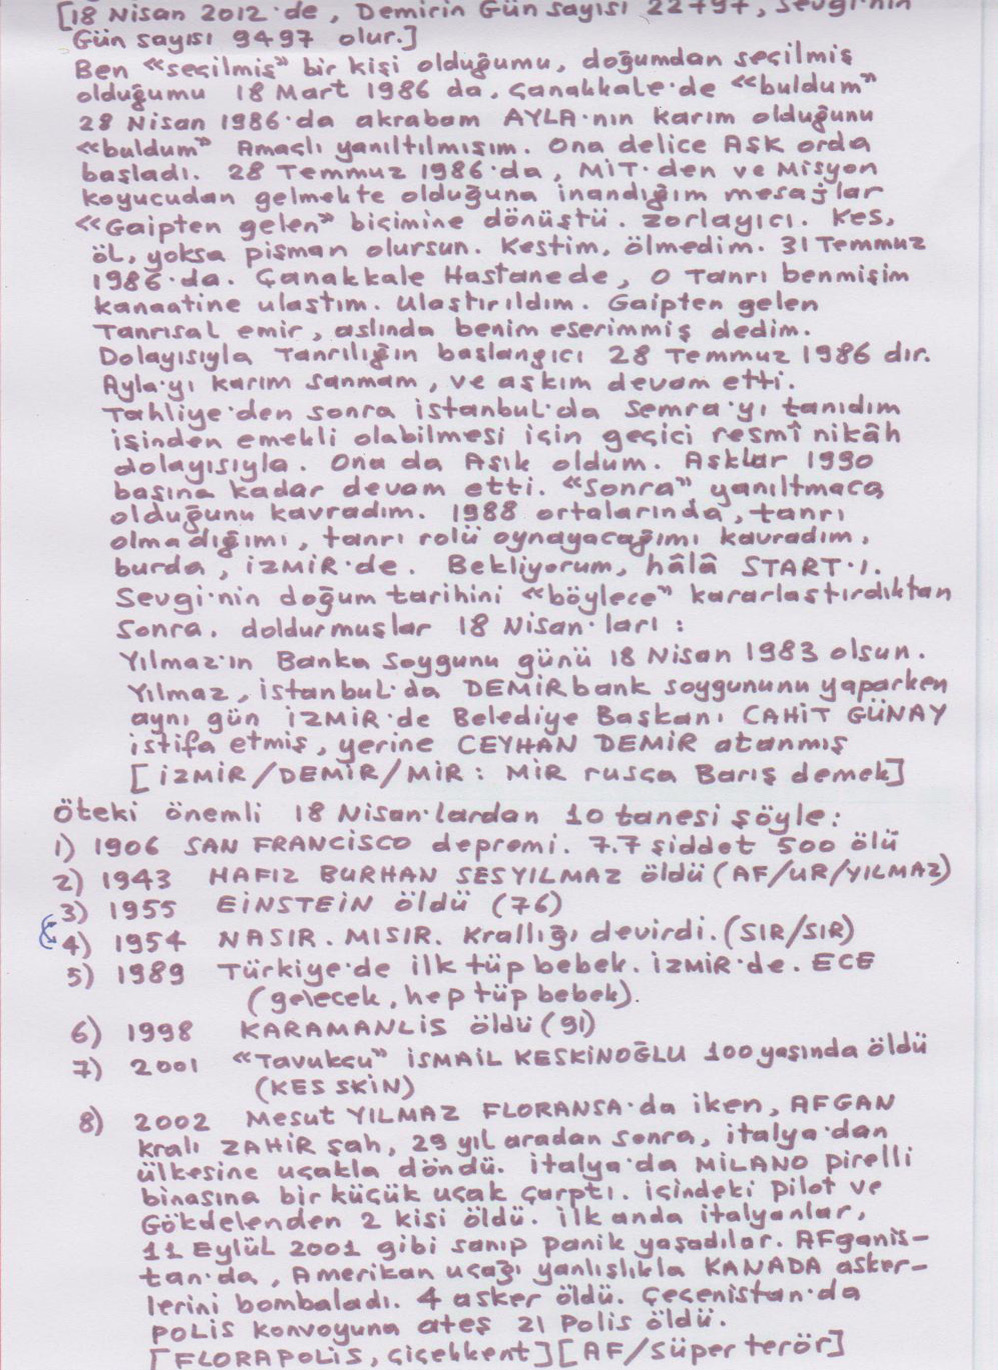 [18 Nisan 2012'de, Demirin Gün sayısı 22797, Sevgi'nin
Gün sayısı 9497 olur.]
Ben «seçilmiş» bir kişi olduğumu, doğumdan seçilmiş
olduğumu 18 Mart 1986 da, Çanakkale'de «buldum»
28 Nisan 1986'da akrabam AYLA'nın karım olduğunu
«buldum» Amaçlı yanıltılmışım. Ona delice AŞK orda
başladı. 28 Temmuz 1986'da, MİT'den ve Misyon
koyucudan gelmekte olduğuna inandığım mesajlar
«Gaipten gelen» biçimine dönüştü. Zorlayıcı. Kes,
öl, yoksa pişman olursun. Kestim, ölmedim. 31 Temmuz
1986'da. Çanakkale Hastanede, O Tanrı benmişim
kanaatine ulaştım. Ulaştırıldım. Gaipten gelen
Tanrısal emir, aslında benim eserimmiş dedim.
Dolayısıyla Tanrılığın başlangıcı 28 Temmuz 1986 dır.
Ayla'yı karım sanmam, ve aşkım devam etti.
Tahliye'den sonra İstanbul'da Semra'yı tanıdım
işinden emekli olabilmesi için geçici resmî nikâh
dolayısıyla. Ona da Aşık oldum. Aşklar 1990
başına kadar devam etti. «Sonra» yanıltmaca
olduğunu kavradım. 1988 ortalarında, tanrı
olmadığımı, tanrı rolü oynayacağımı kavradım,
burda, İZMİR'de. Bekliyorum, hâlâ START'ı.
Sevgi'nin doğum tarihini «böylece» kararlaştırdıktan
Sonra. doldurmuşlar 18 Nisan'ları:
Yılmaz'ın Banka Soygunu günü 18 Nisan 1983 olsun.
Yılmaz, İstanbul'da DEMİRbank soygununu yaparken
aynı gün İZMİR'de Belediye Başkanı CAHİT GÜNAY
istifa etmiş, yerine CEYHAN DEMİR atanmış
[İZMİR/DEMİR/MİR: MİR rusça Barış demek]
Öteki önemli 18 Nisan'lardan 10 tanesi şöyle:
1) 1906 SAN FRANCİSCO depremi. 7.7 şiddet 500 ölü
2) 1943 HAFIZ BURHAN SESYILMAZ öldü (AF/UR/YILMAZ)
3) 1955 EİNSTEİN öldü (76)
4) 1954 NASIR. MISIR. Krallığı devirdi. (SIR/SIR)
5) 1989 Türkiye'de ilk tüp bebek. İZMİR'de. ECE
(gelecek, hep tüp bebek).
6) 1998 KARAMANLİS öldü (91)
7) 2001 «Tavukçu» İSMAİL KESKİNOĞLU 100 yaşında öldü
(KES SKİN)
8) 2002 Mesut YILMAZ FLORANSA'da iken, AFGAN
kralı ZAHİR şah, 29 yıl aradan sonra, İtalya'dan
ülkesine uçakla döndü. İtalya'da MİLANO pirelli
binasına bir küçük uçak çarptı. içindeki pilot ve
Gökdelenden 2 kişi öldü. İlk anda İtalyanlar,
11 Eylül 2001 gibi sanıp panik yaşadılar. AFganis-
tan'da, Amerikan uçağı yanlışlıkla KANADA asker-
lerini bombaladı. 4 asker öldü. Çeçenistan'da
POLİS konvoyuna ateş 21 Polis öldü.
[FLORAPOLİS, Çiçekkent] [AF/Süper terör]